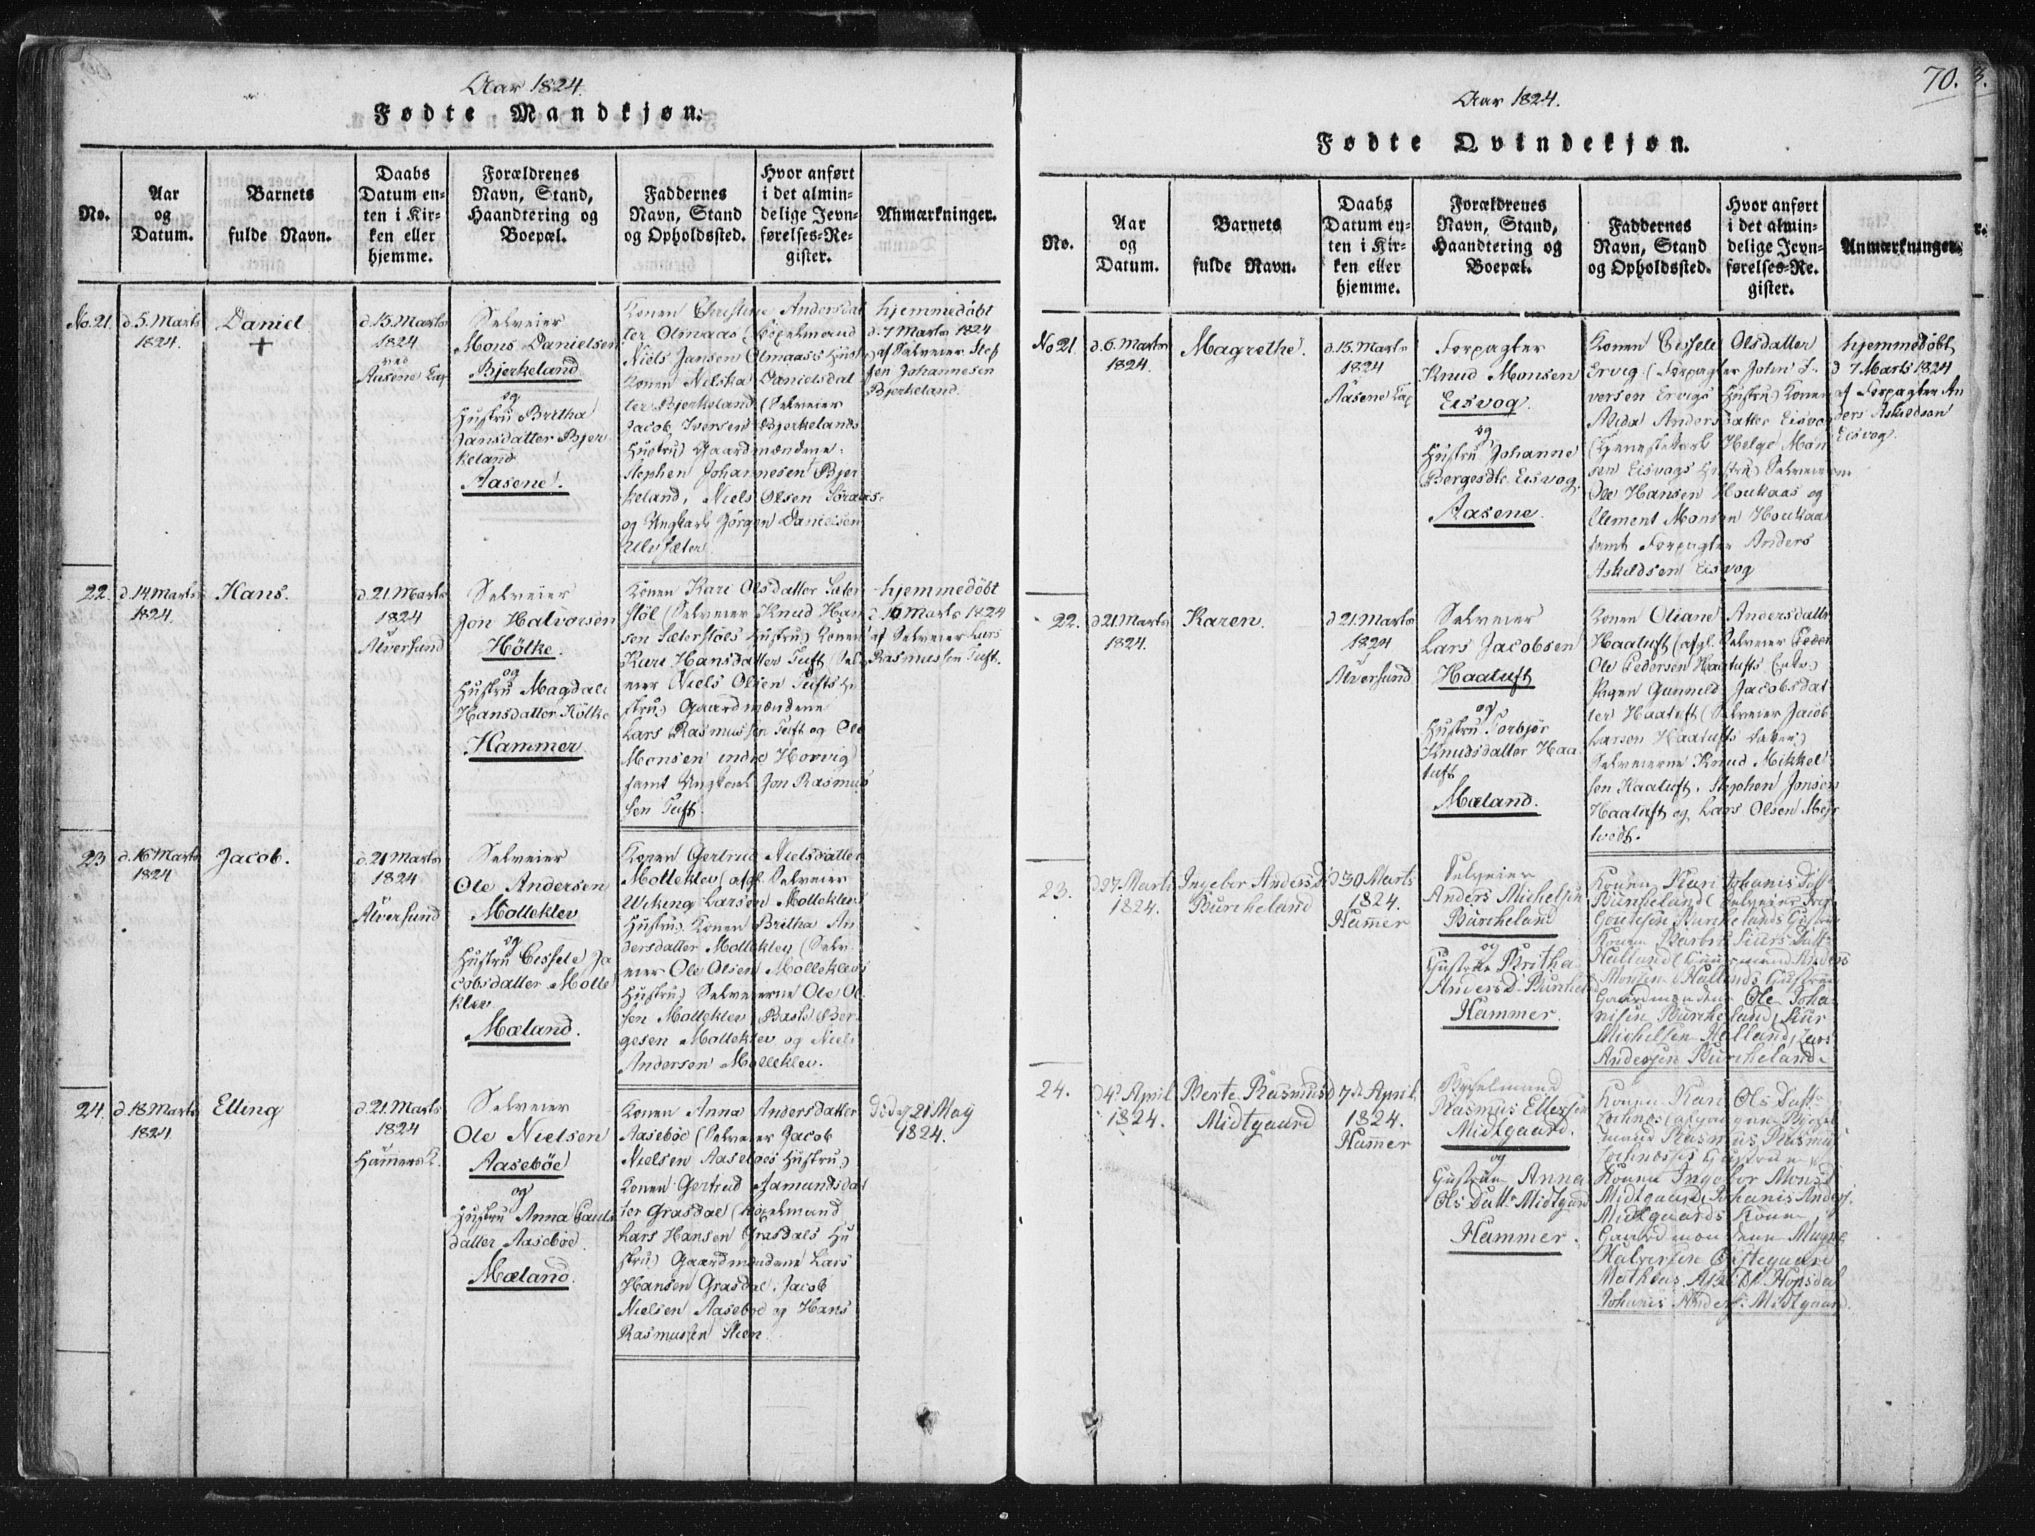 Aar 1824.
Fødte Mandkjøn.
No.
Aar
og
Datum.
Barnets
fulde Navn.
Daabs
Datum en-
ten i Kir-
ken eller
hjemme.
Forældrenes
Navn, Stand,
Haandtering og
Boepæl.
Faddernes
Navn, Stand
og Opholdssted.
Hvor anført
i det almin-
delige Jevn-
førelses-Re-
gister.
Anmærkninger.
No. 21.
d. 5. Marts
1824.
Daniel
+
d. 15. Marts
1824
ved
Aasene Cap
Selveier
Mons Danielsen
Bjerkeland
og
Hustru Britha
Jansdatter Bjer
keland.
Aasene.
Konen Christine Andersdat
ter Olmaas (Bøxelmand
Niels Jansen Olmaass Hust
Konen Nilsta Danielsdat
ter Bjerkeland (Selveier
Jacob Iversen Bjerkelands
Hustru) Gaardmændene
Stephen Johannesen Bjer
keland, Niels Olsen
og Ungkarl Jørgen Danielsen
Ulvsæter.
hjemmedøbt
d. 7 Marts 1824
af Selveier Step
hen Johannesen
Bjerkeland.
22.
d. 14. Marts
1824.
Hans.
d. 21. Marts
1824
Alversund
Selveier
Jon Halvorsen
Hölke.
og
Hustru Magdali
Hansdatter Hölke
Hammer
Konen Kari Olsdatter Sæter
stöl (Selveier Knud Han
sen Sæterstöls Hustru) Konen
Kari Hansdatter Tuft (Sel
veier Niels Olsen Tufts Hu
stru) Gaardmændene
Lars Rasmussen Tuft og Ole
Monsen indre Hovvig
samt Ungkarl Jon Rasmus
sen Tuft.
hjemmedøbt
d. 16 Marts 1824
af Selveier Lars
Rasmussen Tuft.
23
d. 16 Marts
1824
Jacob.
d. 21 Marts
1824
Alversund
Selveier
Ole Andersen
Molleklev
og
Hustru Cissele Ja
cobsdatter Molle
klev
Mæland.
Konen Gertrud Nielsdatter
Molleklev (afgl. Selveier
Wiking Larsen Molleklevs
Hustru) Konen Britha An
dersdatter Molleklev (Selv-
eier Ole Olsen Molleklevs
Hustru) Selveierne Ole Ol
sen Molleklev Ber-
gesen Molleklev og Niels
Andersen Molleklev.
24.
d. 18 Marts
1824
Elling
d. 21. Marts
1824
Hamers K.
Selveier
Ole Nielsen
Aaseböe
og
Hustru Anna Pauls
datter Aaseböe.
Mæland.
Konen Anna Andersdatter
Aaseböe (Selveier Jacob
Nielsen Aaseböes Hustru)
Konen Gertrud Aamundsdat
ter Grasdal (Bøxelmand
Lars Hansen Grasdals Hu
stru) Gaardmændene Lars
Hansen Grasdal, Jacob
Nielsen Aaseböe og Hans
Rasmussen Steen
21 May
1824.
70.
Aar 1824.
Fødte Qvindekjøn.
No.
Aar
og
Datum.
Barnets
fulde Navn.
Daabs
Datum en-
ten i Kir-
ken eller
hjemme.
Forældrenes
Navn, Stand,
Haandtering og
Boepæl.
Faddernes
Navn, Stand
og Opholdssted.
Hvor anført
i det almin-
delige Jevn-
førelses-Re-
gister.
Anmærkninger.
No 21.
d. 6. Marts
1824.
Magrethe.
d. 15. Marts
1824
Aasene Cap
Forpagter
Knud Monsen
Eisvog.
og
Hustru Johanne
Bergesdtr Eisvog.
Aasene.
Konen Cissele Olsdatter
Ervig (Forpagter John I-
versen Ervigs Hustru) Konen
Mida Andersdatter Eisvog
(Tjenestekarl Helge Mon
sen Eisvogs Hustru) Selveierne
Ole Hansen Houkaas og
Clement Monsen Houkaa
samt Forpagter Anders
Askildsen Eisvog
hjemmedøbt
d 7 Marts 1824
af Forpagter An
ders Askildsen
Eisvog.
22.
d. 21. Marts
1824.
Karen.
d. 21. Marts
1824
Alversund
Selveier
Lars Jacobsen
Haatuft
og
Hustru Torbjör
Knudsdatter Haa
tuft
Mæland.
Konen Oliane Andersdatter
Haatuft (afgl. Selveier Peder
Ole Pedersen Haatufts Enke)
Pigen Gunneld Jacobsdat
ter Haatuft (Selveier Jacob
Larsen Haatufts Datter)
Selveierne Knud Mikkel
sen Haatuft, Stephen Jonsen
Haatuft og Lars Olsen Mejr
tvedt.
23.
d 27 Marts
1824.
Ingebor Anders D.
Burcheland
d 30 Marts
1824.
Hammer
Selveier
Anders Michelsen
Burcheland
og
Hustrue Britha
Anders D. Burchel
Hammer.
Konen Kari Johanis Datt.
Burcheland (Selveier
Burchelands Hustrue
Konen Barbro Siurs Datt.
Helland (Huusmand Anders
Monsen Hellands Hustrue
Gaardmændene Ole Joha-
nisen Burcheland, Siur
Michelsen Helland, Lars
Andersen Burcheland.
24.
d 4de April
1824.
Berte Rasmusd
Midtgaard
7de April
1824.
Hammer
Bøxelmand
Rasmus Ellersen
Midtgaard.
og
Hustrue Anna
Ols Datt. Midtgaard
Hammer.
Konen Kari Ols Datt.
Rasmus Rasmus
Hustrue
Konen Ingebor Mons D
Midtgaard, Johanis Anders.
Midtgaards Kone
Gaardmændene Mogns
Halversen Østegaard
Mathias Hopsdal
Johanis Anders. Midtgaard.